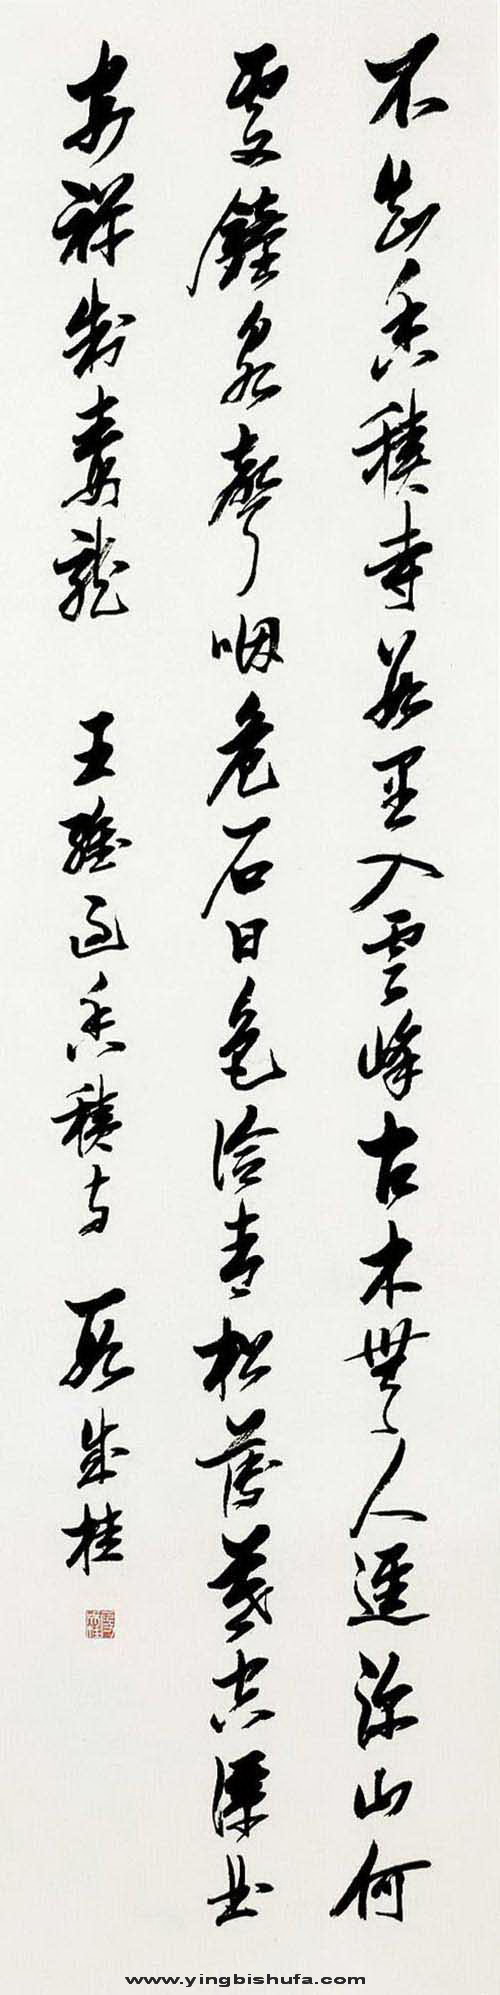 不知香積寺數里入雲峰古木無人逕深山何
處鐘泉聲咽危石日色冷青松薄暮空潭曲
安禪制毒龍 王維過香積寺 段成桂
www.yingbishufa.com